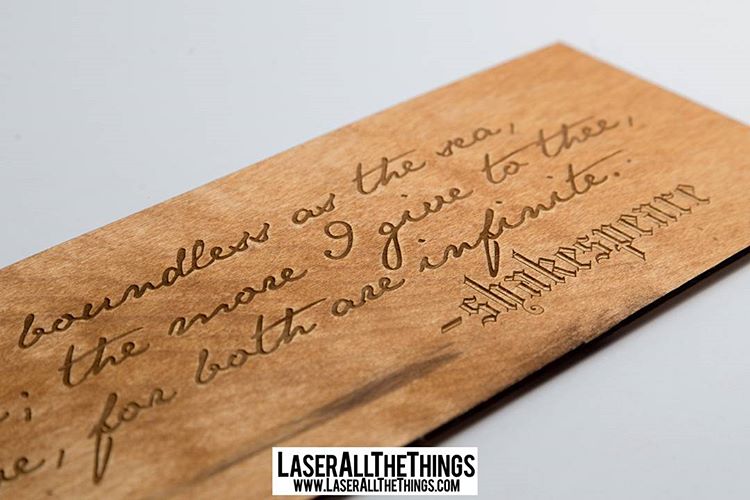 boundless as the sea,
; the more I give to thee,
, for both are infinite.
-shakespeare
LASERALLTHETHINGS
WWW.LASERALLTHETHINGS.COM